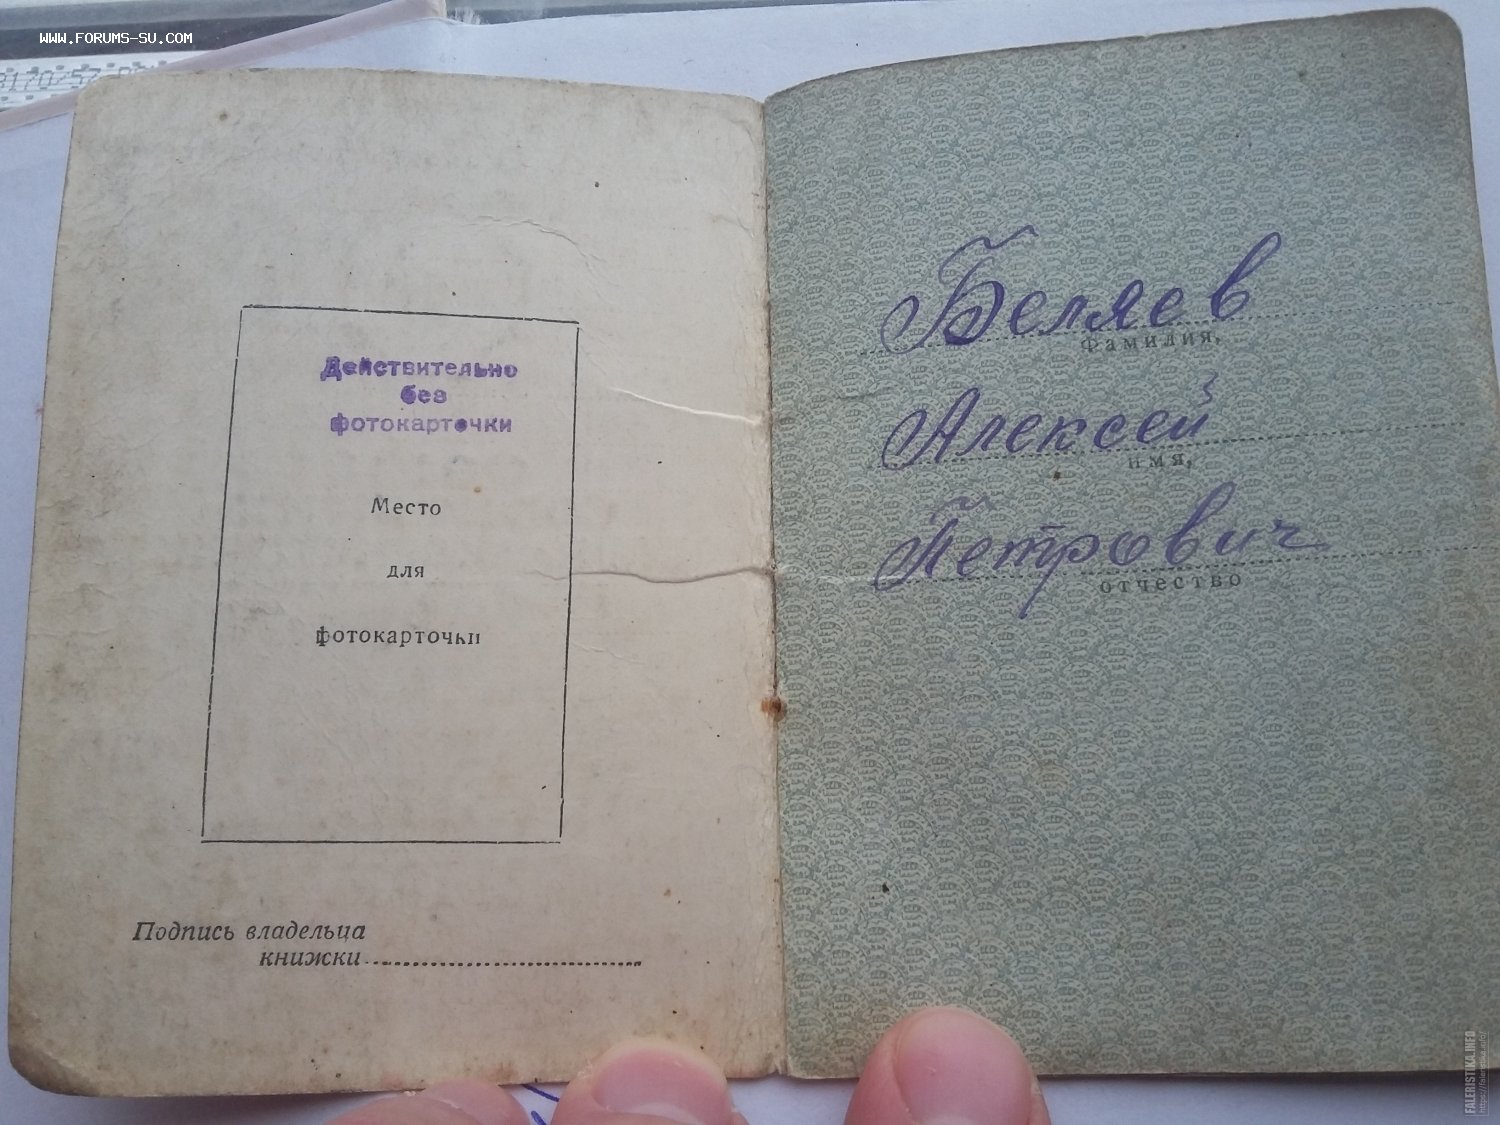 WWW.FORUMS-SU.COM
Действительно
без
фотокарточки
Место
для
фотокарточки
Подпись владельца
книжки
Беляев
Фамилия,
Алексей
имя,
Петрович
отчество
FALERISTIKA.INFO
https://faleristika.info/